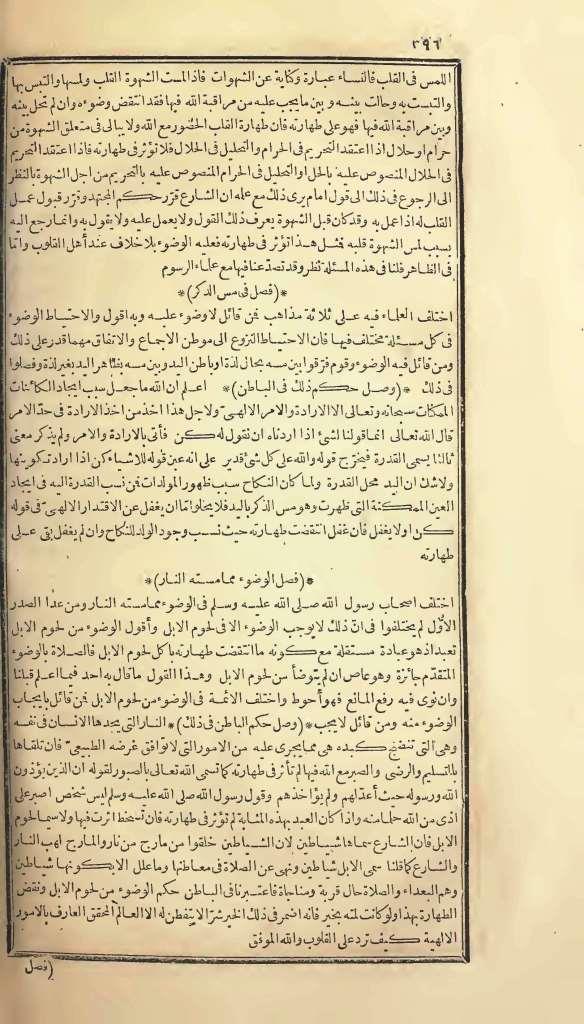 ٣٩٦
اللمس فى القلب فالنساء عبارة وكناية عن الشهوات فاذا لمست الشهوة القلب ولمسها والتبس بها
والتبست به وحالت بينه وبين ما يجب عليه من مراقبة الله فيها فقد انتقض وضوءه وان لم تحل بينه
وبين مراقبة الله فيها فهو على طهارته فان طهارة القلب الحضور مع الله ولا يبالى فى متعلق الشهوة من
حرام او حلال اذا اعتقد التحريم فى الحرام والتحليل فى الحلال فلا تؤثر فى طهارته فاذا اعتقد التحريم
فى الحلال المنصوص عليه بالحل او التحليل فى الحرام المنصوص عليه بالتحريم من اجل الشهوة بالنظر
الى الرجوع فى ذلك الى قول امام يرى ذلك مع علمه ان الشارع قرر حكم المجتهد وقرر قبول عمل
القلب له اذا عمل به وقد كان قبل الشهوة يعرف ذلك القول ولا يعمل عليه ولا يقول به وانما رجع اليه
بسبب لمس الشهوة قلبه فمثل هذا تؤثر فى طهارته فعليه الوضوء بلا خلاف عند أهل القلوب واما
فى الظاهر فلنا فى هذه المسئلة نظر وقد تصدعنا فيها مع علماء الرسوم
*(فصل فى مس الذكر)*
اختلف العلماء فيه على ثلاثة مذاهب فمن قائل لا وضوء عليه وبه اقول والاحتياط الوضوء
فى كل مسئلة مختلف فيها فان الاحتياط النزوع الى موطن الاجماع والاتفاق مهما قدر على ذلك
ومن قائل فيه الوضوء وقوم فرقوا بين مسه بحال لذة او باطن اليد وبين مسه بظاهر اليد بغير لذة وفصلوا
فى ذلك *(وصل حكم ذلك فى الباطن)* اعلم ان الله ما جعل سبب ايجاد الكائنات
الممكنات سبحانه وتعالى الا الارادة والامر الالهى ولاجل هذا اخذ من اخذ الارادة فى حد الامر
قال الله تعالى انما قولنا لشئ اذا اردناه ان نقول له كن فأتى بالارادة والامر ولم يذكر معنى
ثالثا يسمى القدرة فيخرج قوله والله على كل شئ قدير على انه عين قوله للاشياء كن اذا اراد تكوينها
ولا شك ان اليد محل القدرة ولما كان النكاح سبب ظهور المولدات فمن نسب القدرة اليه فى ايجاد
العين الممكنة التى ظهرت وهو مس الذكر باليد فلا يخلو اما ان يغفل عن الاقتدار الالهى فى قوله
كن او لا يغفل فان غفل انتقضت طهارته حيث نسب وجود الولد للنكاح وان لم يغفل بقى على
طهارته
*(فصل الوضوء مما مسته النار)*
اختلف اصحاب رسول الله صلى الله عليه وسلم فى الوضوء مما مسته النار ومن عدا الصدر
الاول لم يختلفوا فى ان ذلك لا يوجب الوضوء الا فى لحوم الابل وأقول الوضوء من لحوم الابل
تعبدا اذ هو عبادة مستقلة مع كونه ما انتقضت طهارته باكل لحوم الابل فالصلاة بالوضوء
المتقدم جائزة وهو عاص ان لم يتوضأ من لحوم الابل وهذا القول ما قال به احد فيما اعلم قبلنا
وان نوى فيه رفع المانع فهو أحوط واختلف الائمة فى الوضوء من لحوم الابل فمن قائل بايجاب
الوضوء منه ومن قائل لا يجب *(وصل حكم الباطن فى ذلك)* النار التى يجدها الانسان فى نفسه
وهى التى تنضج كبده هى مما يجرى عليه من الامور التى لا توافق غرضه الطبيعى فان تلقاها
بالتسليم والرضى والصبر مع الله فيها لم تأثر فى طهارته كما تسمى الله تعالى بالصبور لقوله ان الذين يؤذون
الله ورسوله حيث أمهلهم ولم يؤاخذهم وقول رسول الله صلى الله عليه وسلم ليس شخص اصبر على
اذى من الله حلما منه واذا كان العبد بهذه المثابة لم تؤثر فى طهارته فان تسخط اثرت فيها ولا سيما لحوم
الابل فان الشارع سماها شياطين لان الشياطين خلقوا من مارج من نار والمارج لهب النار
والشارع كما قلنا سمى الابل شياطين ونهى عن الصلاة فى معاطنها وما علل الا بكونها شياطين
وهم البعداء والصلاة حال قربة ومناجاة فاعتبرنا فى الباطن حكم الوضوء من لحوم الابل ونقض
الطهارة بهذا ولو كانت لمته بخير فانه اضمر فى ذلك الخير شرا لا يتفطن له الا العالم المحقق العارف بالامور
الالهية كيف ترد على القلوب والله الموفق
(فصل